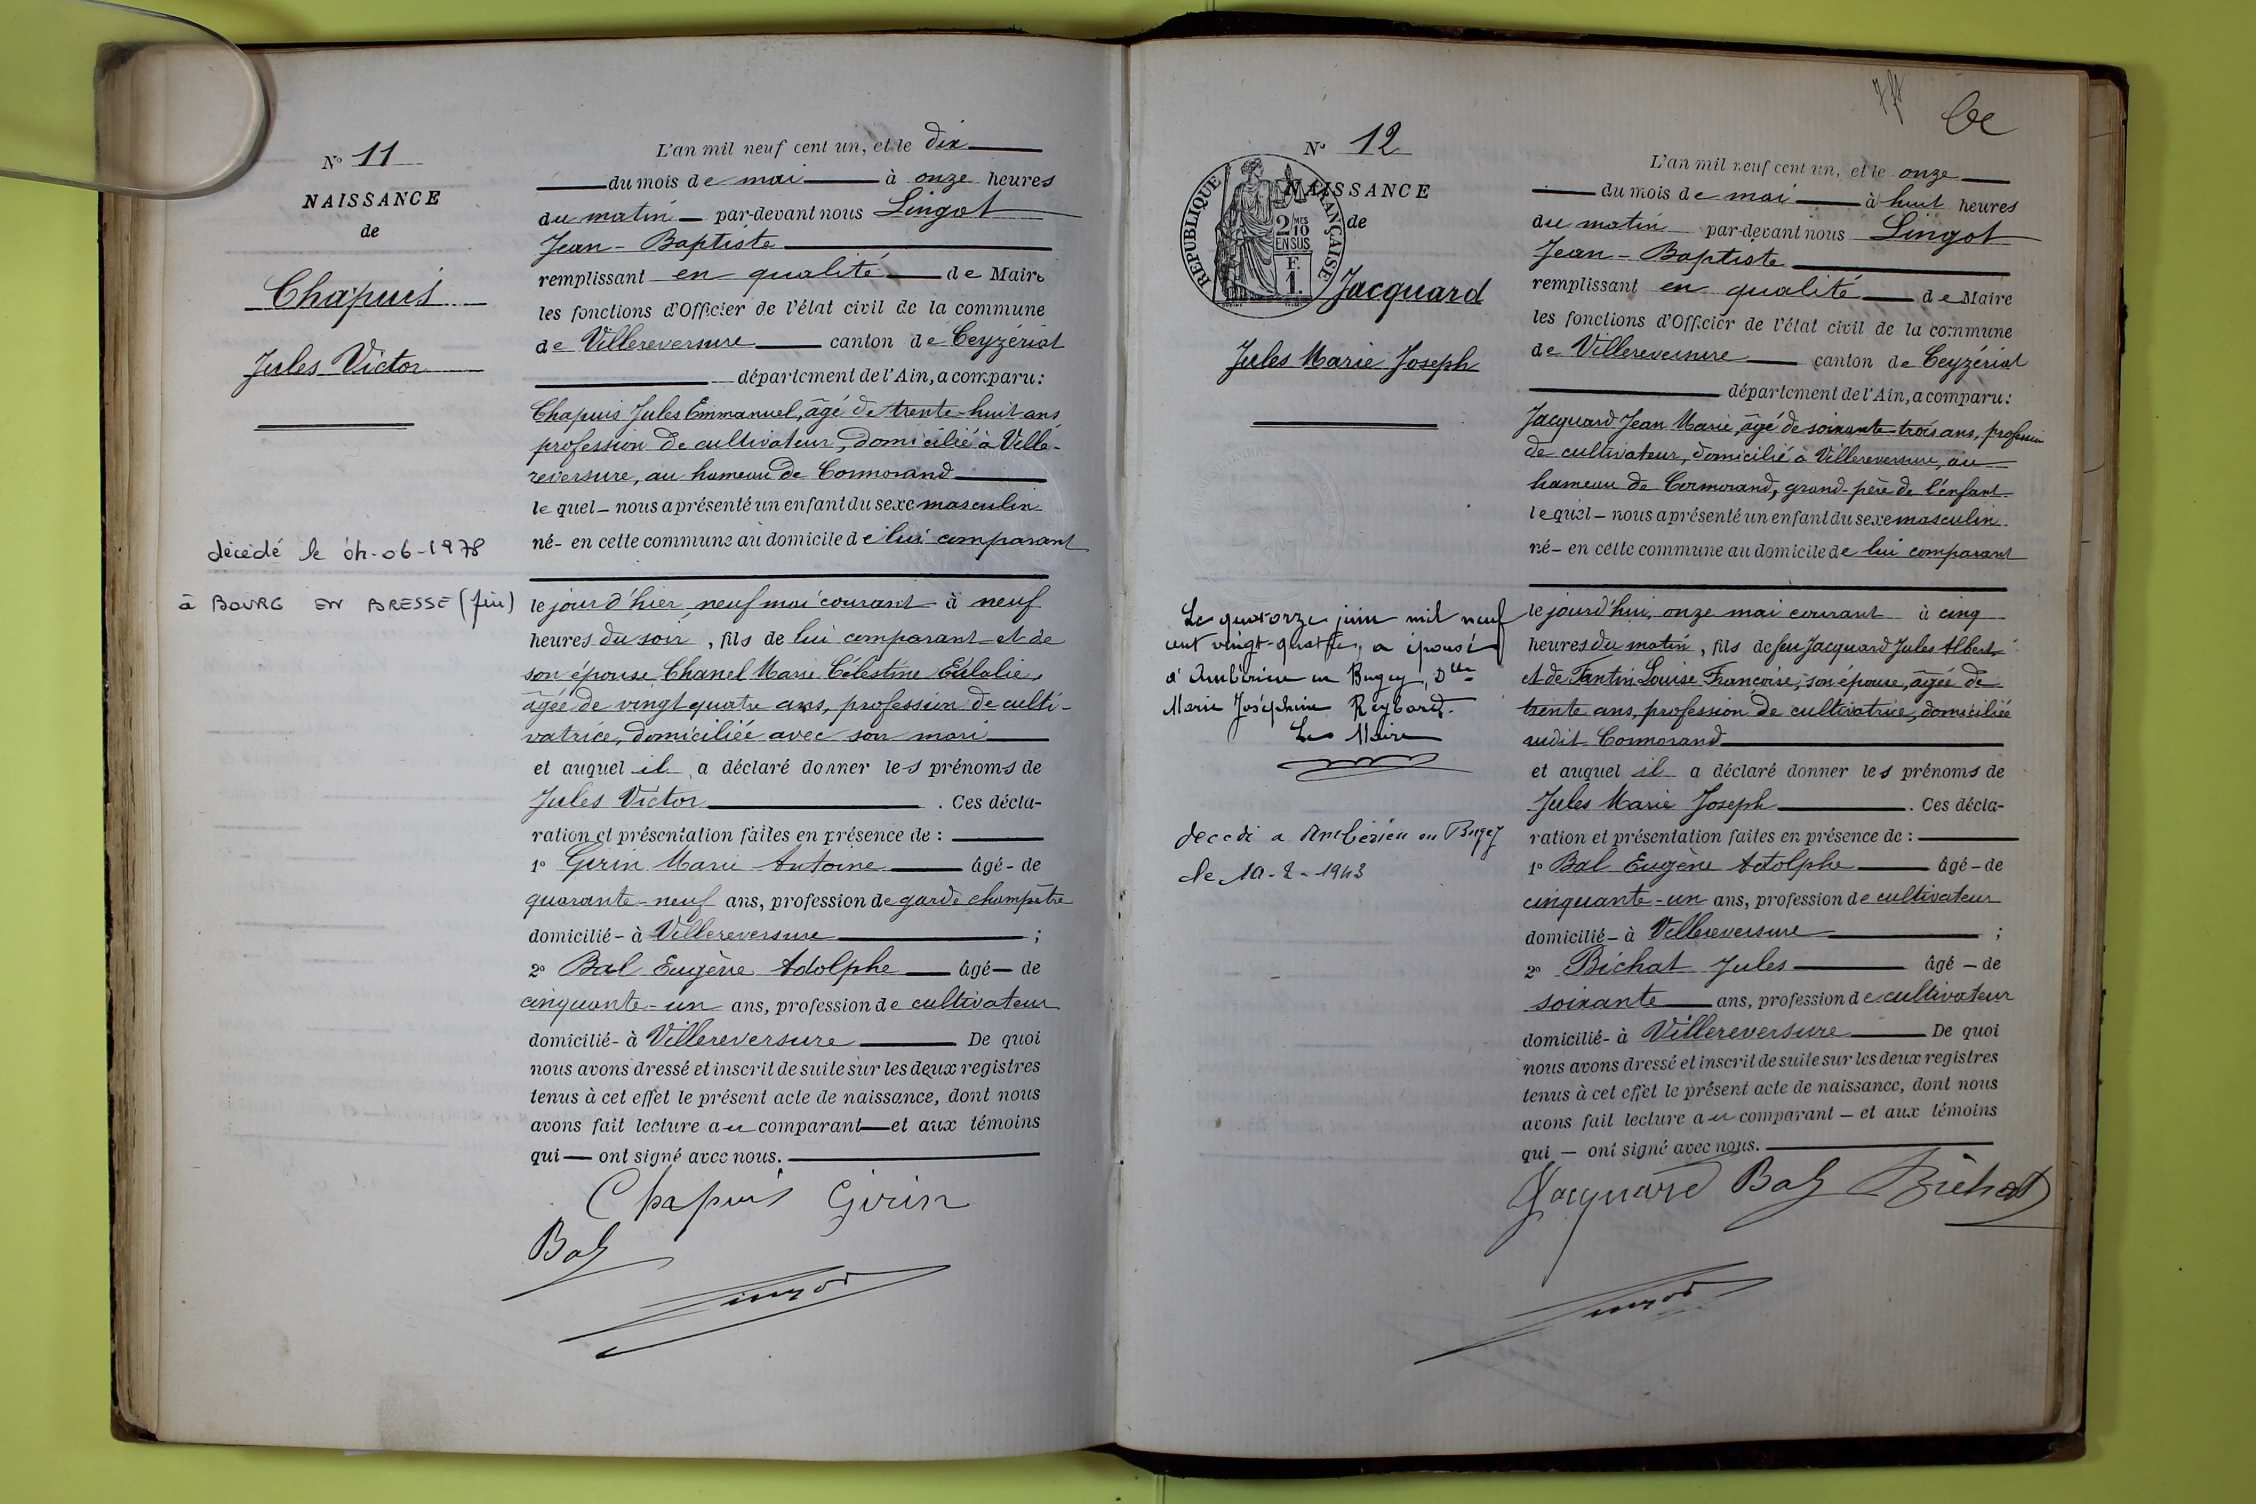 N° 11
NAISSANCE
de
Chapuis
Jules Victor
décédé le 04-06-1978
à BOURG EN BRESSE (Ain)
L'an mil neuf cent un, et le dix
du mois de mai à onze heures
du matin par-devant nous Lingot
Jean-Baptiste
remplissant en qualité de Maire
les fonctions d'Officier de l'état civil de la commune
de Villereversure canton de Ceyzériat
département de l'Ain, a comparu:
Chapuis Jules Emmanuel, âgé de trente-huit ans
profession de cultivateur, domicilié à Ville-
reversure, au hameau de Cormorand
le quel nous a présenté un enfant du sexe masculin
né en cette commune au domicile de lui comparant
le jour d'hier, neuf mai courant à neuf
heures du soir, fils de lui comparant et de
son épouse Chanel Marie Célestine Eulalie,
âgée de vingt quatre ans, profession de culti-
vatrice, domiciliée avec son mari
et auquel il a déclaré donner les prénoms de
Jules Victor. Ces décla-
ration et présentation faites en présence de :
1° Girin Marie Antoine âgé de
quarante-neuf ans, profession de garde champêtre
domicilié à Villereversure ;
2° Bal Eugène Adolphe âgé de
cinquante-un ans, profession de cultivateur
domicilié à Villereversure De quoi
nous avons dressé et inscrit de suite sur les deux registres
tenus à cet effet le présent acte de naissance, dont nous
avons fait lecture au comparant et aux témoins
qui ont signé avec nous.
Chapuis Girin
Bal
Lingot
Be
N° 12
NAISSANCE
de
RÉPUBLIQUE FRANÇAISE
2 MES
10
EN SUS
F.
1.
Jacquard
Jules Marie Joseph
Le quatorze juin mil neuf
cent vingt-quatre, a épousé
à Ambérieu en Bugey, Dlle
Marie Joséphine Reybard.
Le Maire
décédé a Ambérieu en Bugey
le 10-2-1943
L'an mil neuf cent un, et le onze
du mois de mai à huit heures
du matin par-devant nous Lingot
Jean-Baptiste
remplissant en qualité de Maire
les fonctions d'Officier de l'état civil de la commune
de Villereversure canton de Ceyzériat
département de l'Ain, a comparu:
Jacquard Jean Marie, âgé de soixante trois ans, profession
de cultivateur, domicilié à Villereversure, au
hameau de Cormorand, grand-père de l'enfant
le quel nous a présenté un enfant du sexe masculin
né en cette commune au domicile de lui comparant
le jourd'hui, onze mai courant à cinq
heures du matin, fils de feu Jacquard Jules Albert
et de Fantin Louise Françoise, son épouse, âgée de
trente ans, profession de cultivatrice, domiciliée
audit Cormorand
et auquel il a déclaré donner les prénoms de
Jules Marie Joseph. Ces décla-
ration et présentation faites en présence de :
1° Bal Eugène Adolphe âgé de
cinquante-un ans, profession de cultivateur
domicilié à Villereversure ;
2° Bichat Jules âgé de
soixante ans, profession de cultivateur
domicilié à Villereversure De quoi
nous avons dressé et inscrit de suite sur les deux registres
tenus à cet effet le présent acte de naissance, dont nous
avons fait lecture au comparant et aux témoins
qui ont signé avec nous.
Jacquard Bal Bichat
Lingot